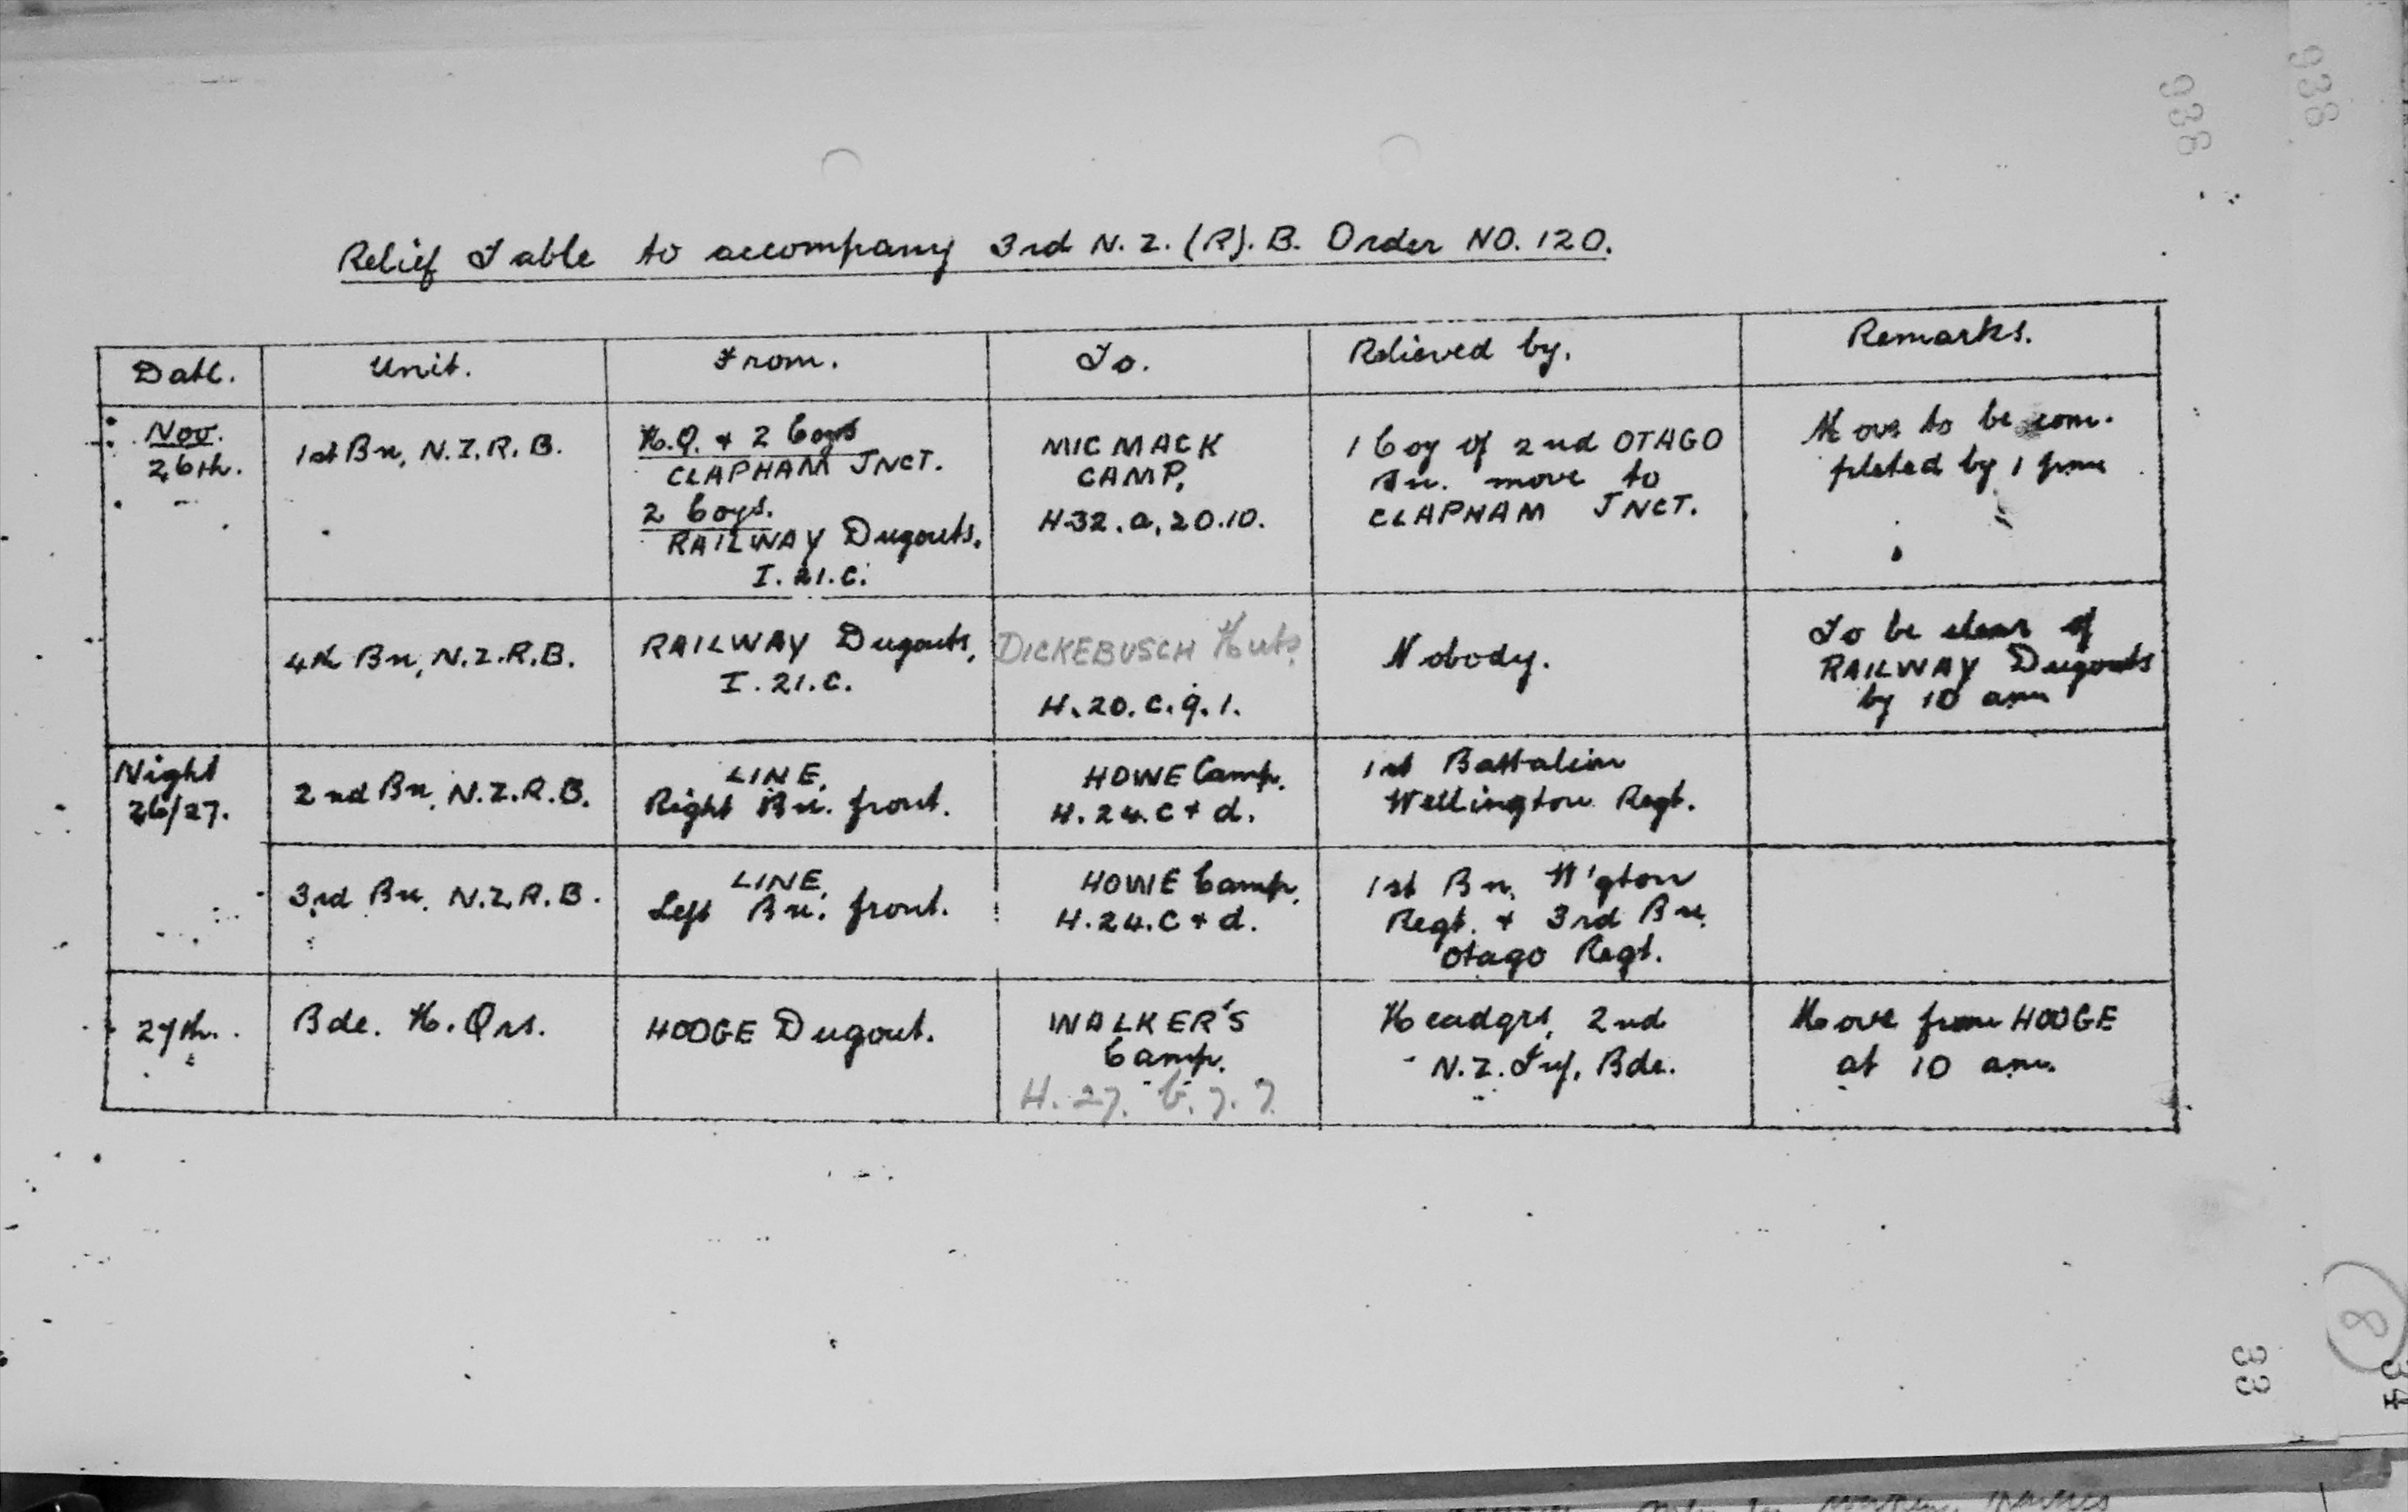 938
938
Relief Table to accompany 3rd N.Z.(R).B. Order NO. 120.
Date.
Unit.
From.
To.
Relieved by.
Remarks.
Nov.
26th.
1st Bn, N.Z.R.B.
H.Q. + 2 Coys
CLAPHAM JNCT.
2 Coys.
RAILWAY Dugouts.
I.21.c.
MICMACK
CAMP,
H.32.a.20.10.
1 Coy of 2nd OTAGO
Bn. move to
CLAPHAM JNCT.
Move to be com-
pleted by 1 pm
4th Bn, N.Z.R.B.
RAILWAY Dugouts,
I.21.c.
DICKEBUSCH Huts
H.20.c.9.1.
Nobody.
To be clear of
RAILWAY Dugouts
by 10 am
Night
26/27.
2nd Bn, N.Z.R.B.
LINE,
Right Bn. front.
HOWE Camp.
H.24.c + d.
1st Battalion
Wellington Regt.
3rd Bn. N.Z.R.B.
LINE,
Left Bn. front.
HOWE Camp,
H.24.c + d.
1st Bn. W'gton
Regt. + 3rd Bn.
Otago Regt.
27th.
Bde. H.Qrs.
HOOGE Dugout.
WALKER'S
Camp.
H.27.b.7.7.
Headqrs, 2nd
N.Z. Inf. Bde.
Move from HOOGE
at 10 am.
8
33
34